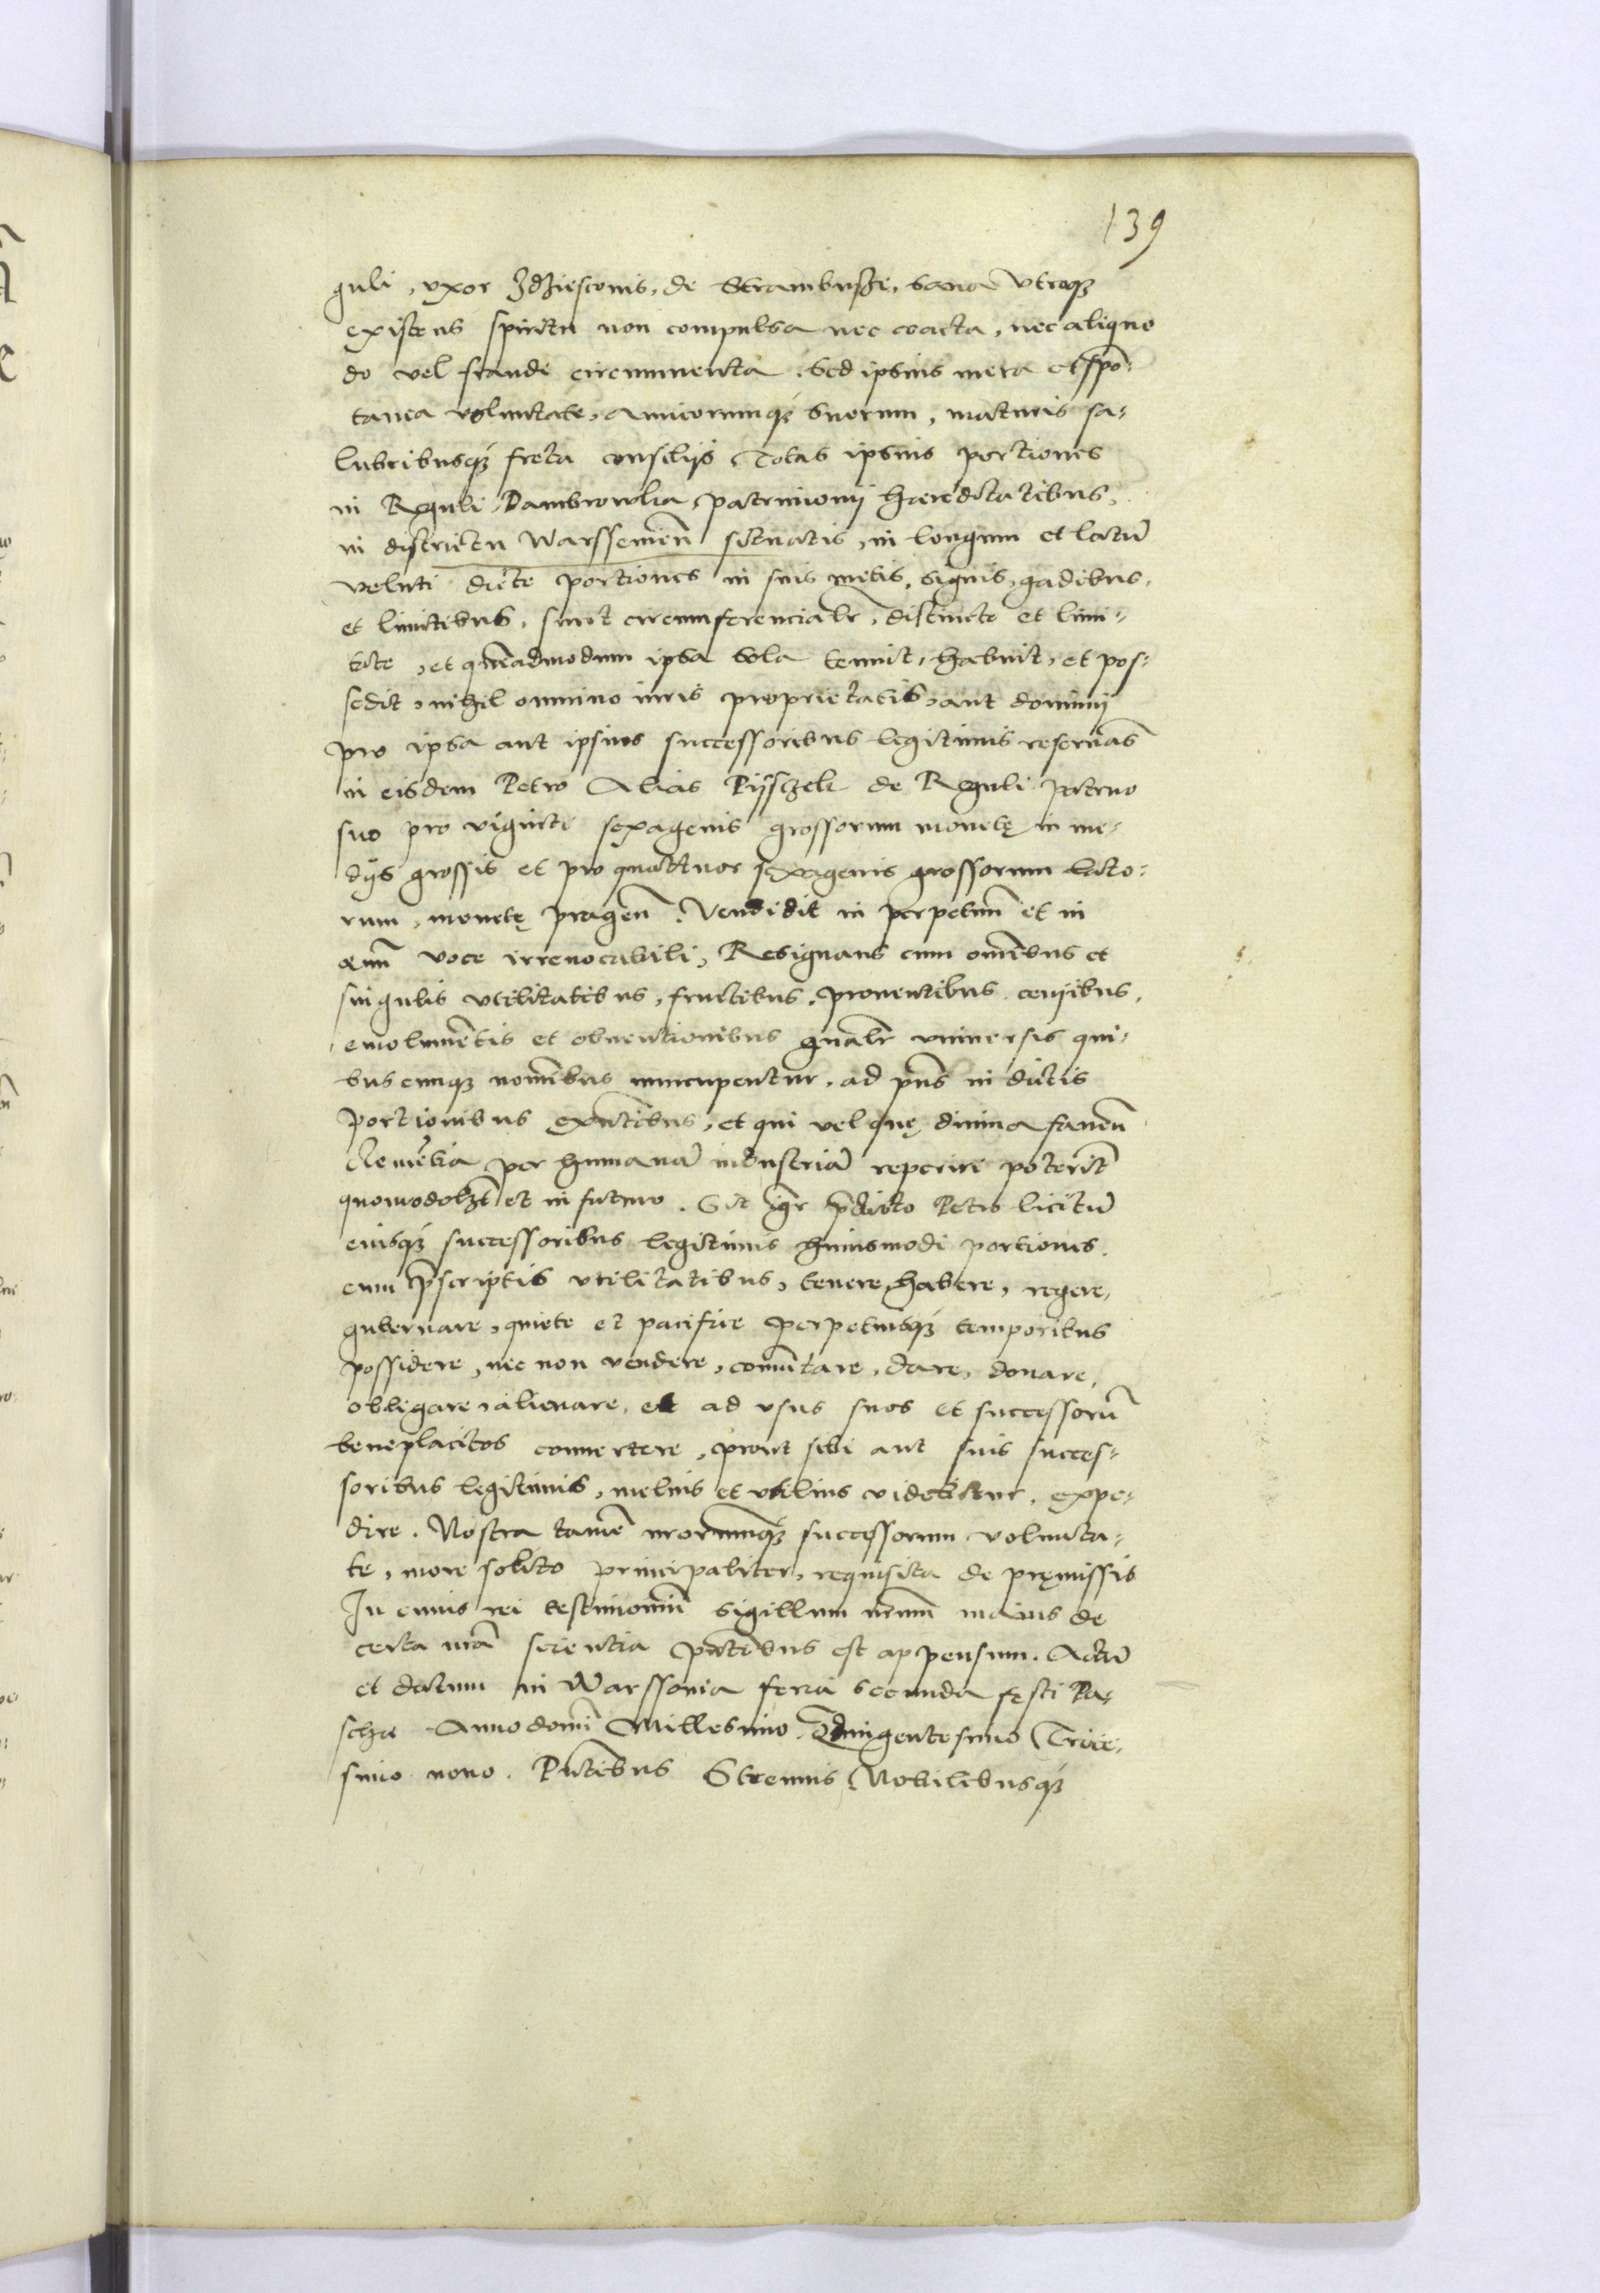 139
guli, vxor Idziesconis, de Strambusze, sana vtroq3
existens spiritu non compulsa nec coacta, nec aliquo
do vel fraude circumuenta, sed ipsius mera et spō-
tanea voluntate, amicorumq3 suorum, maturis sa-
lubribusq3 freta consilijs, Totas ipsius portiones
in Reguli, Dambrowka, patrimonij haereditatibus,
in districtu Warssewieñ situatis, in longum et latū
veluti dicte portiones in suis metis, signis, gadibus,
et limitibus, sunt circumferencialr, distincte et limi-
tate, et quēadmodum ipsa sola tenuit, habuit, et pos-
sedit, nihil omnino iuris proprietatis, aut dominij
pro ipsa aut ipsius successoribus legitimis reseruās
in eisdem Petro Alias Pijsczek de Reguli patruo
suo pro viginti sexagenis grossorum monetę in me-
dijs grossis et pro quattuor sexagenis grossorum lato-
rum, monetę prageñ. Vendidit in perpetuū et in
æuū voce irreuocabili, Resignans cum omībus et
singulis vtilitatibus, fructibus, prouentibus censibus,
emolumētis et obuentionibus gñalr vniuersis qui-
buscumq3 nomībus nuncupentur, ad pñs in dictis
portionibus exñtibus, et qui vel quę diuina fauēñ
clemētia per humanā industriā reperiri poterīt
quomodolzt et in futuro. Sit igr p̄dicto Petro licitū
eiusq3 successoribus legitimis huiusmodi portiones,
cum p̄scriptis vtilitatibus, tenere, habere, regere,
gubernare, quiete et pacifice perpetuisq3 temporibus
possidere, nec non vendere, comūtare, dare, donare,
obligare, alienare, et ad vsus suos et successorū
beneplacitos conuertere, prout sibi aut suis succes-
soribus legitimis, melius et vtilius videbitur, expe-
dire. Nostra tamē nrorumq3 successorum volunta-
te, more solito principaliter, requisita de pręmissis
In cuius rei testimoniū sigillum nrum maius de
certa nrā scientia pñtibus est appensum. Actū
et datum in Warssouia feria secunda festi Pa-
schae Anno domī Millesimo Quingentesimo Trice-
simo nono. Pñtibus Strenuis Nobilibusq3